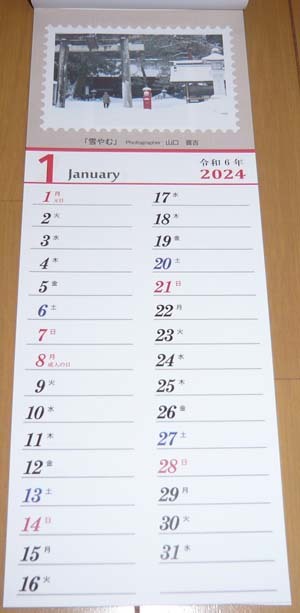 「雪やむ」 Photographer 山口 喜吉
1 January 令和6年 2024
1 月 元日
2 火
3 水
4 木
5 金
6 土
7 日
8 月 成人の日
9 火
10 水
11 木
12 金
13 土
14 日
15 月
16 火
17 水
18 木
19 金
20 土
21 日
22 月
23 火
24 水
25 木
26 金
27 土
28 日
29 月
30 火
31 水